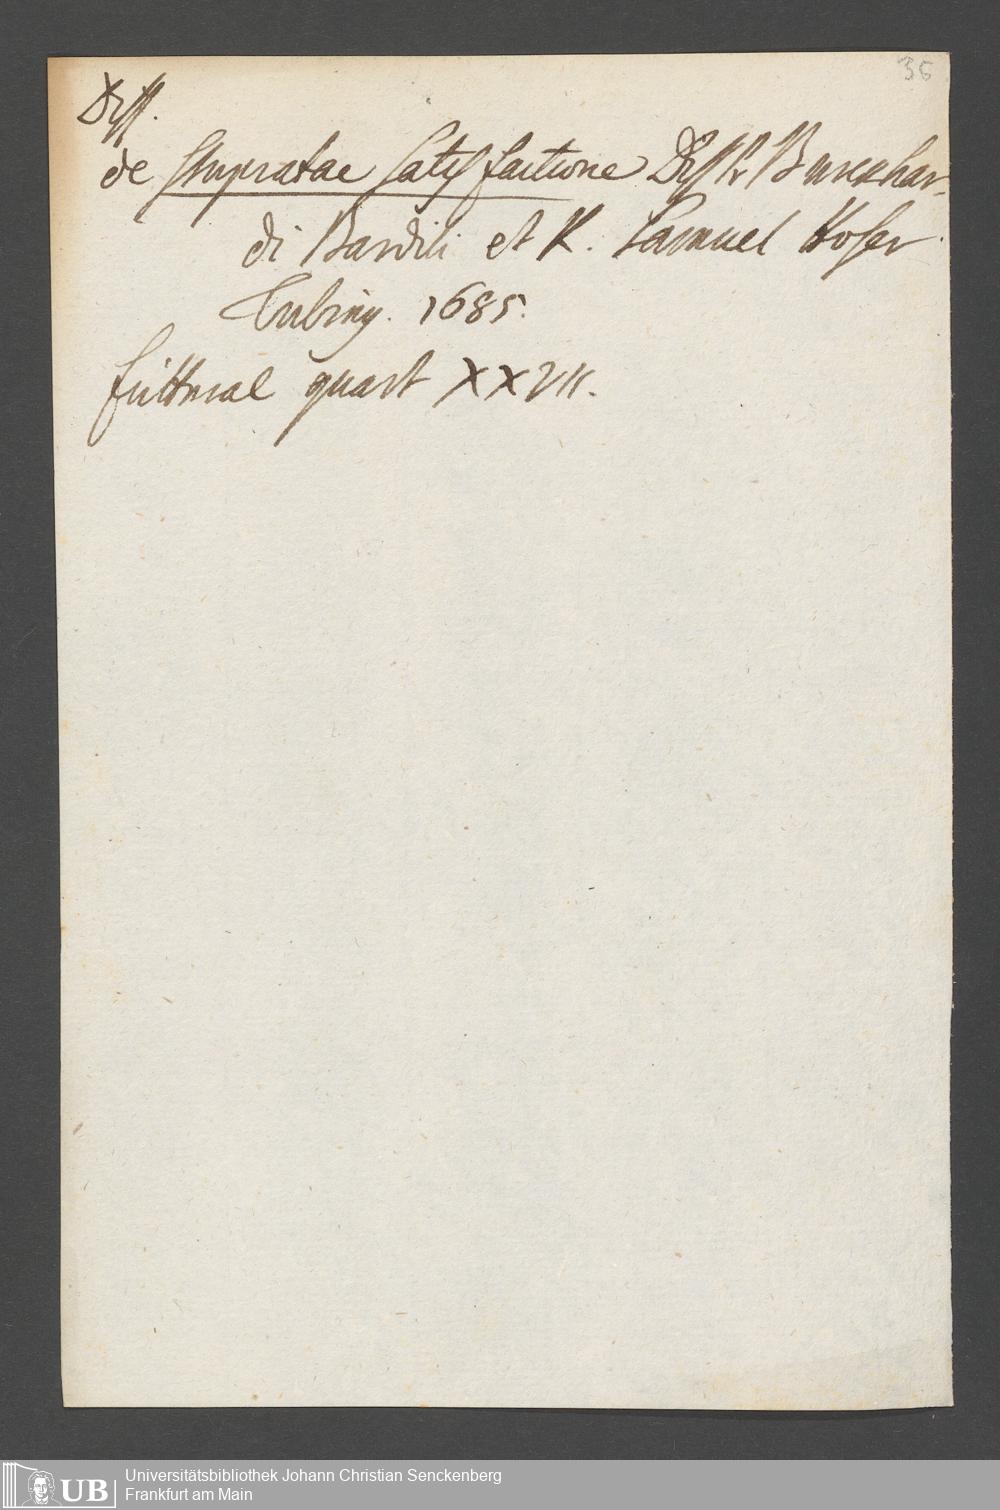 36
Diss.
de stupratae satisfactione Diss. Burckhar-
di Bardili et R. Samuel Hofer
Tubing. 1685.
futteral quart XXVII.
Universitätsbibliothek Johann Christian Senckenberg
Frankfurt am Main
UB